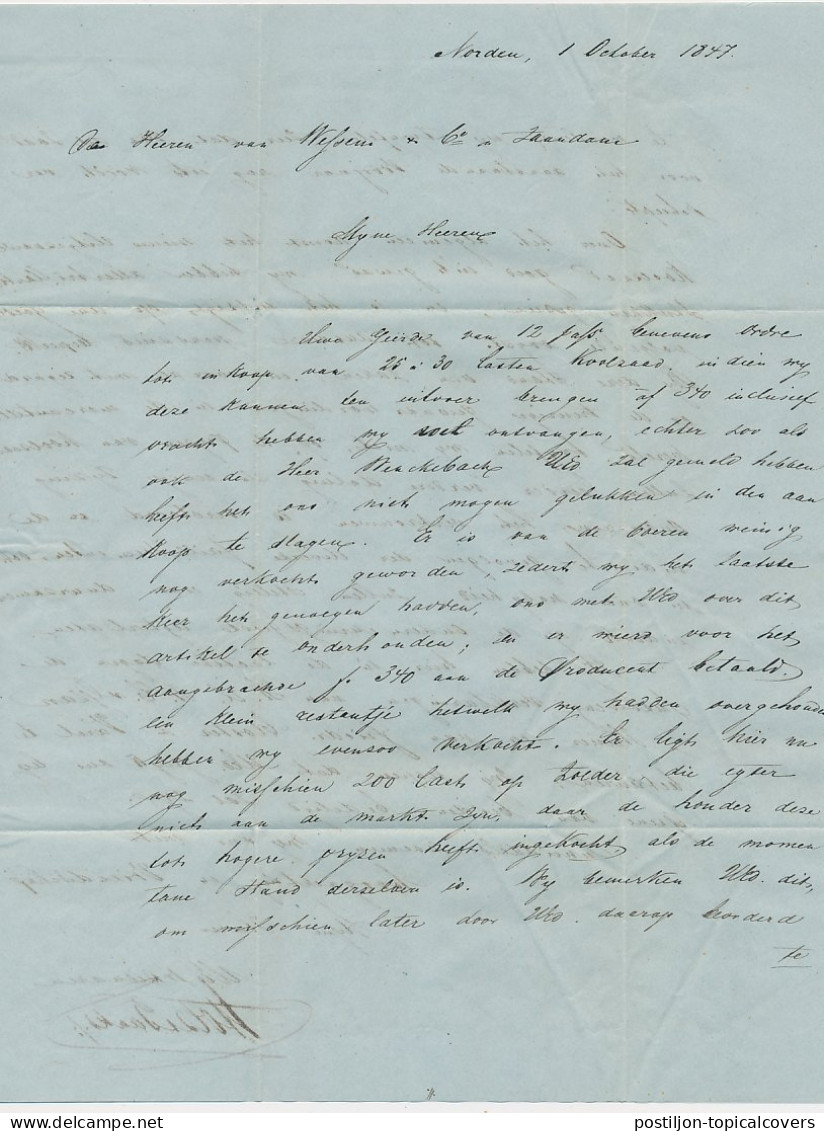 Norden, 1 October 1847.
De Heeren van Wessem & Co a Zaandam
Myne Heeren
Uwe Geerde van 12 pass benevens ordre
tot inkoop van 25 à 30 lasten Koolzaad, in dien wy
deze kunnen ten uitvoer brengen af 340 inclusief
vracht hebben wy wel ontvangen, echter zoo als
ook de Heer Wenckebach UEd zal gemeld hebben
heeft het ons niet mogen gelukken in den aan
koop te slagen. Er is van de boeren weinig
nog verkocht geworden, zedert wy het laatste
keer het genoegen hadden, ons met UEd over dit
artikel te onderhouden; en er wierd voor het
aangebrachte f. 340 aan de Producent betaald.
een klein restantje hetwelk wy hadden overgehouden
hebben wy evenzoo verkocht. Er ligt hier nu
nog misschien 200 last op Zolder die egter
niet aan de markt zyn, daar de houder deze
tot hogere pryzen heeft ingekocht als de momen
tane Stand derselven is. Wy bemerken UEd. dit,
om misschien later door UEd. daarop beorderd
te
postiljon-topicalcovers